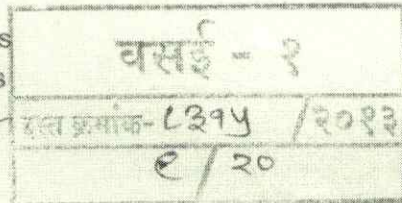 वसई - १
दस्त क्रमांक- ८३१५ /२०१३
९ / २०